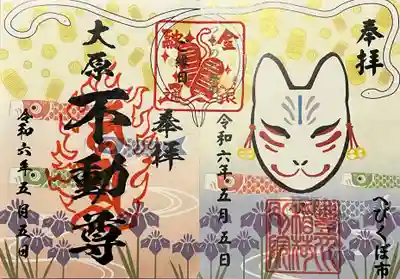 奉拝
へびくぼ市
令和六年五月五日
金
縁日
大原
不動尊
奉拝
令和六年五月五日